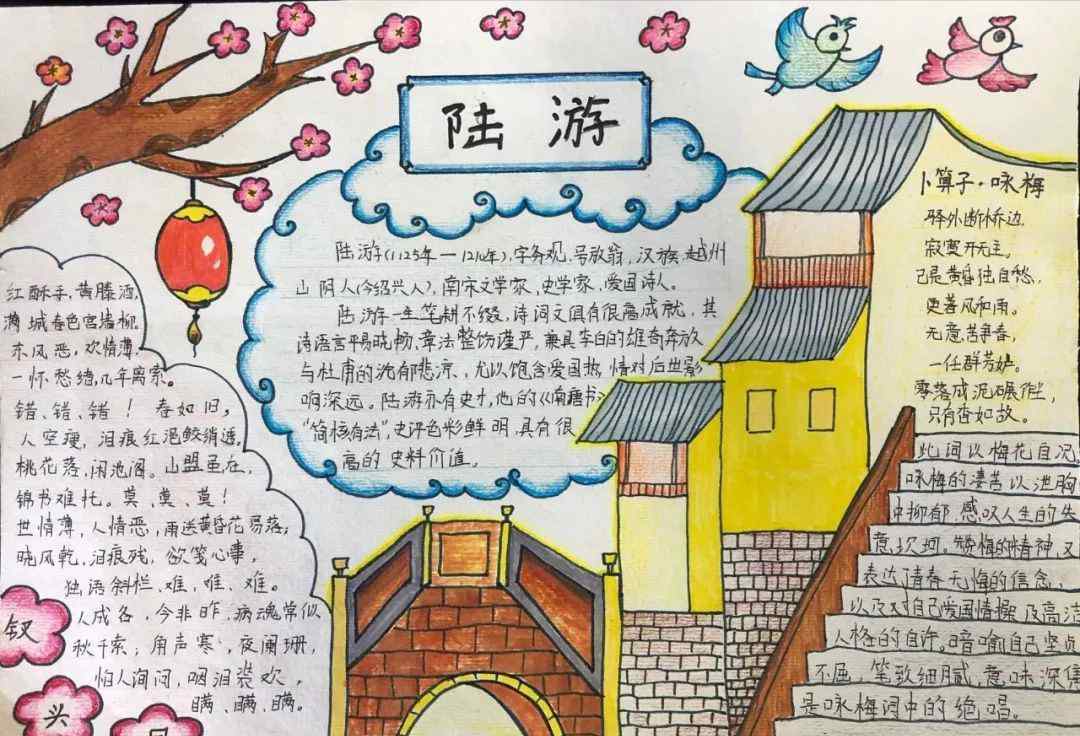 陆游
陆游(1125年—1210年),字务观,号放翁,汉族,越州
山阴人(今绍兴人),南宋文学家、史学家、爱国诗人。
陆游一生笔耕不缀,诗词文俱有很高成就,其
诗语言平易晓畅、章法整饬谨严,兼具李白的雄奇奔放
与杜甫的沈郁悲凉,尤以饱含爱国热情对后世影
响深远。陆游亦有史才,他的《南唐书》
“简核有法”,史评色彩鲜明,具有很
高的史料价值。
红酥手,黄縢酒,
满城春色宫墙柳。
东风恶,欢情薄。
一怀愁绪,几年离索。
错、错、错!春如旧,
人空瘦,泪痕红浥鲛绡透,
桃花落,闲池阁。山盟虽在,
锦书难托。莫、莫、莫!
世情薄,人情恶,雨送黄昏花易落;
晓风乾,泪痕残,欲笺心事,
独语斜栏,难、难、难。
人成各,今非昨,病魂常似
秋千索;角声寒,夜阑珊,
怕人询问,咽泪装欢,
瞒、瞒、瞒。
钗
头
卜算子·咏梅
驿外断桥边,
寂寞开无主。
已是黄昏独自愁,
更著风和雨。
无意苦争春,
一任群芳妒。
零落成泥碾作尘,
只有香如故。
此词以梅花自况
咏梅的凄苦以泄胸
中抑郁,感叹人生的失
意坎坷。赞梅的精神又
表达了青春无悔的信念,
以及对自己爱国情操及高洁
人格的自许。暗喻自己坚贞
不屈,笔致细腻,意味深隽
是咏梅词中的绝唱。